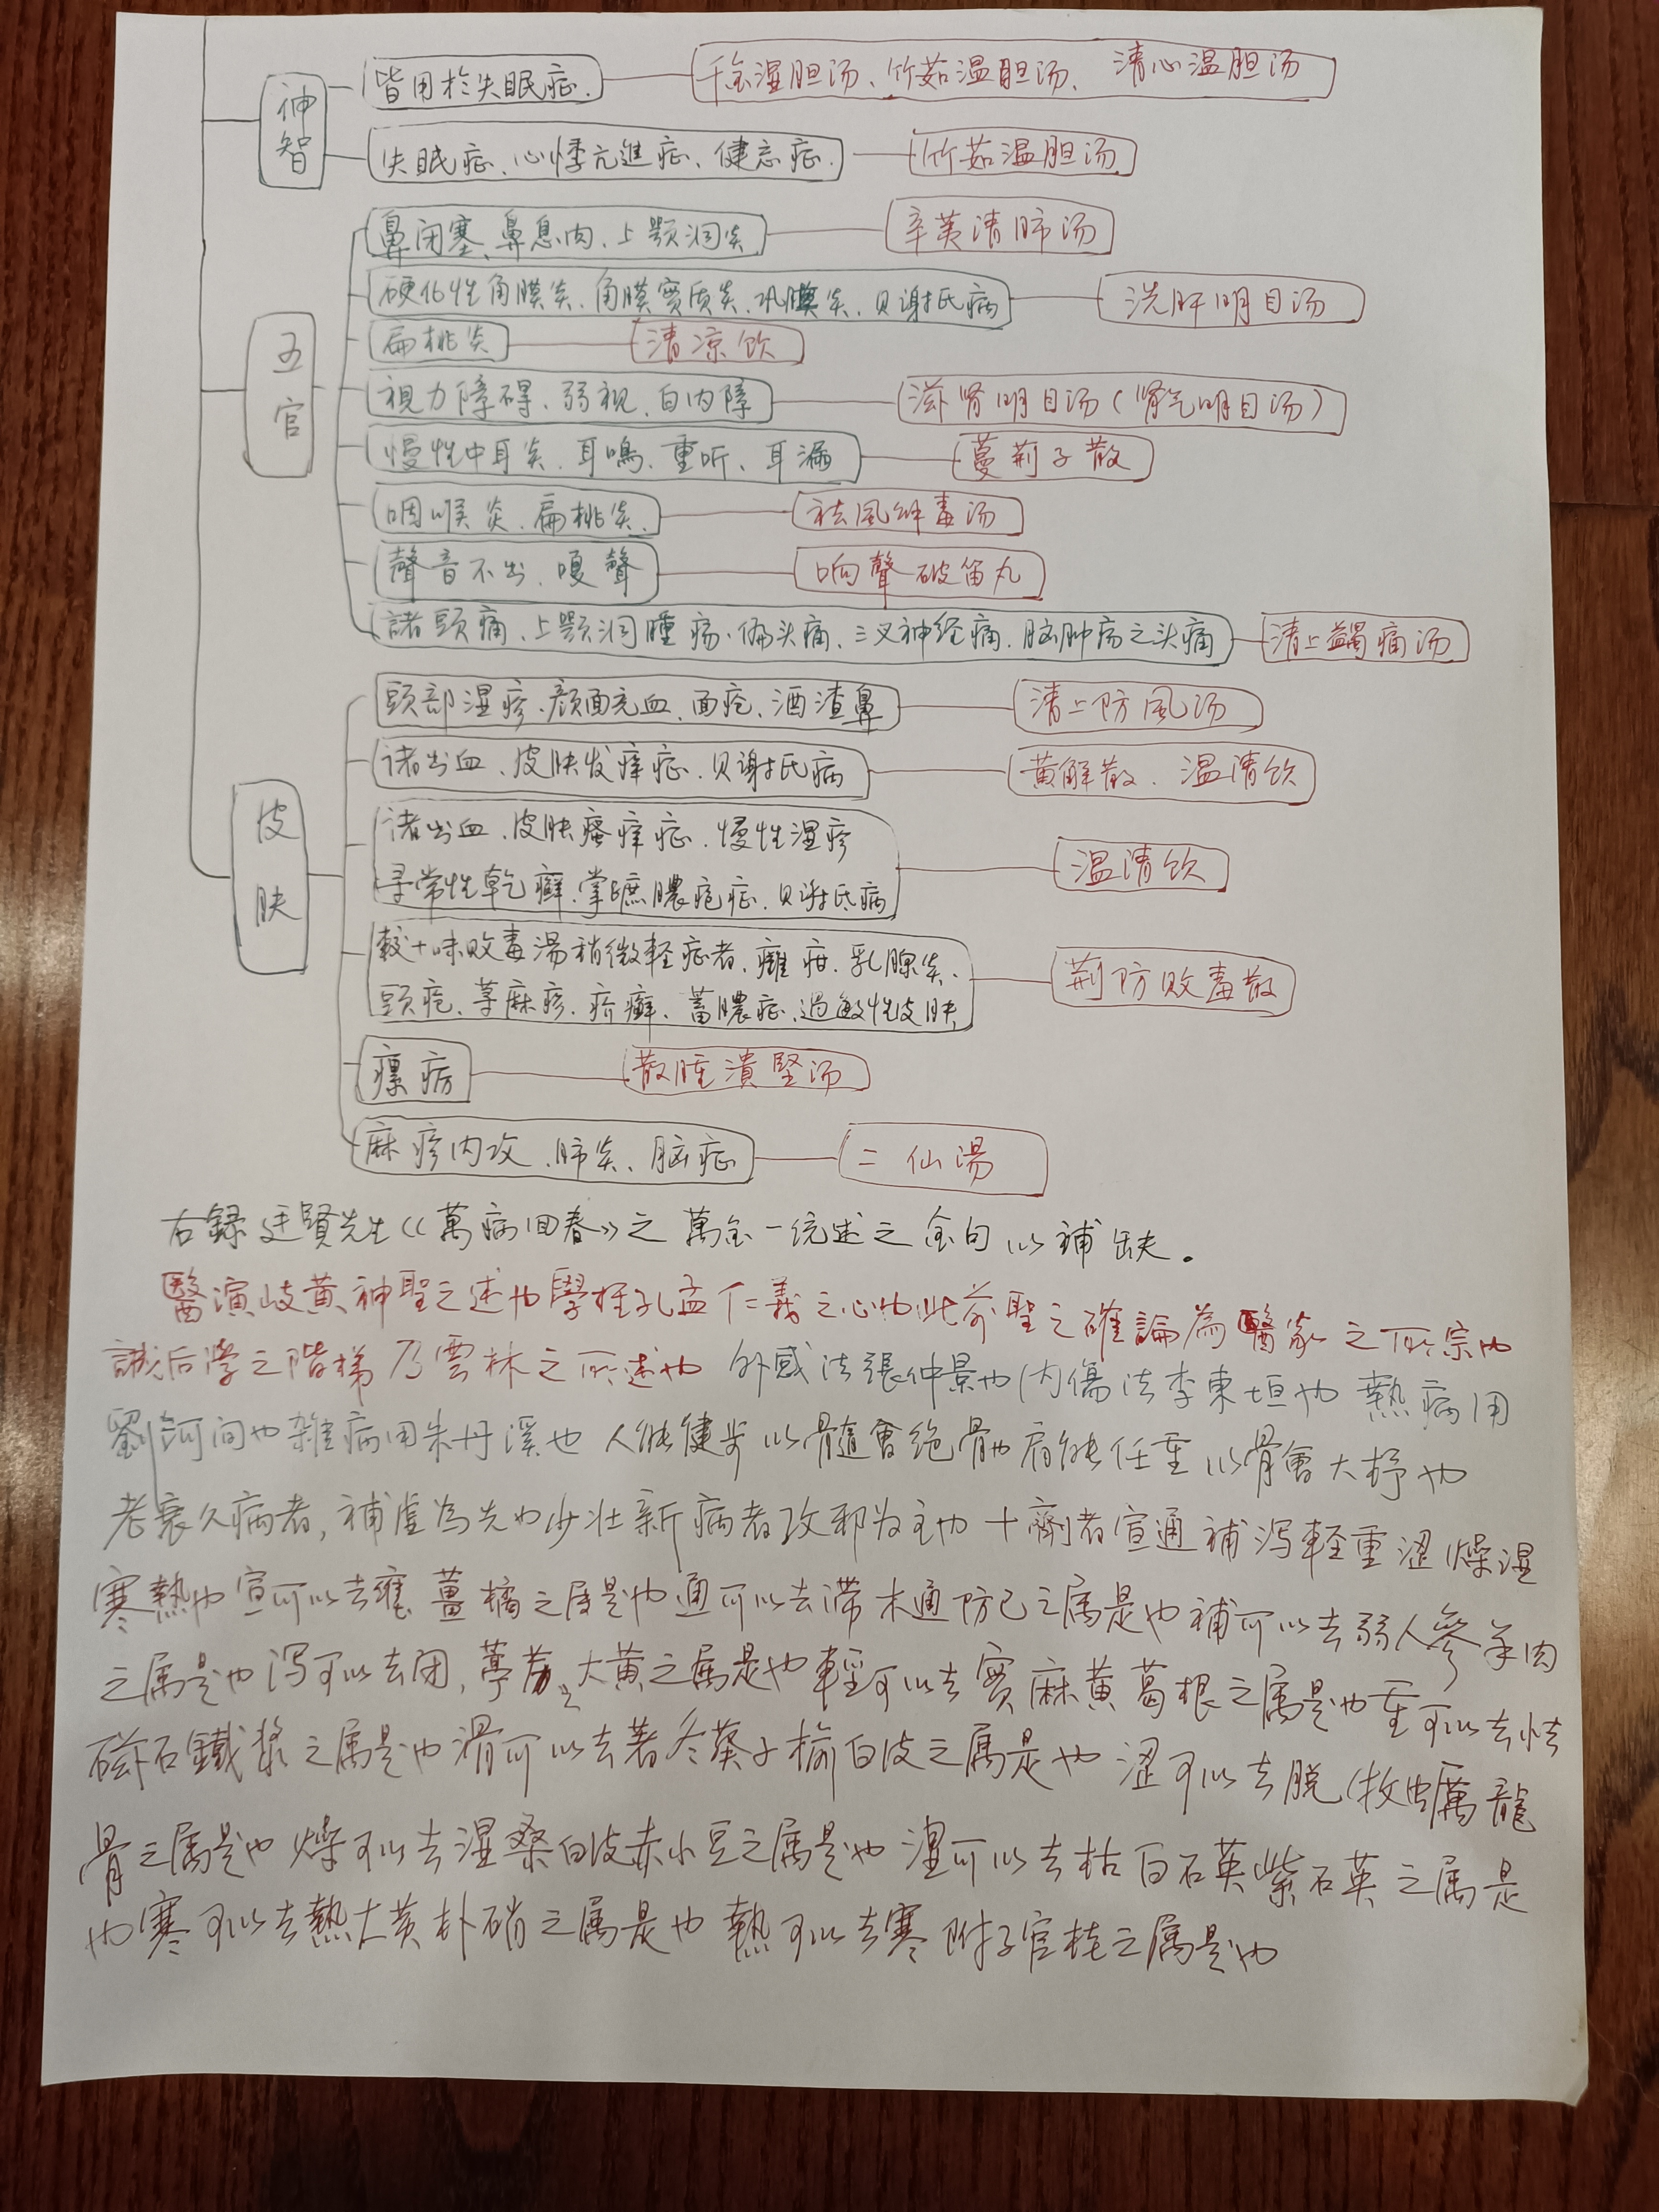 神智
皆用於失眠症.
千金温胆汤、竹茹温胆汤、清心温胆汤
失眠症、心悸亢進症、健忘症.
竹茹温胆汤
五官
鼻闭塞、鼻息肉、上颚洞炎
辛荑清肺汤
硬化性角膜炎、角膜实质炎、巩膜炎、贝谢氏病
洗肝明目汤
扁桃炎
清凉饮
視力障碍、弱视、白内障
滋肾明目汤(肾气明目汤)
慢性中耳炎、耳鳴、重听、耳漏
蔓荊子散
咽喉炎、扁桃炎、
祛風解毒汤
聲音不出、嗄聲
响聲破笛丸
諸頭痛、上颚洞腫疡、偏头痛、三叉神经痛、脑肿疡之头痛
清上蠲痛汤
皮肤
頭部湿疹、颜面充血、面疮、酒渣鼻
清上防風汤
诸出血、皮肤发痒症、贝谢氏病
黄解散、温清饮
诸出血、皮肤瘙痒症、慢性湿疹
寻常性乾癬、掌蹠膿疱症、贝谢氏病
温清饮
較十味败毒湯稍微軽症者、癰疽、乳腺炎、
頭疮、荨麻疹、疥癬、蓄膿症、过敏性皮肤
荊防败毒散
瘰疬
散腫潰堅汤
麻疹内攻、肺炎、脑症
二仙湯
右録廷賢先生《萬病回春》之萬金一统述之金句以補缺。
醫演岐黄神聖之述也學推孔孟仁義之心也此前聖之確論為醫家之所宗也
誠后学之階梯乃雲林之所述也 外感法張仲景也内傷法李東垣也 熱病用
劉河间也雜病用朱丹溪也 人能健步以髓會绝骨也肩能任重以骨會大杼也
老衰久病者,補虚為先也少壮新病者攻邪为主也 十劑者宣通補泻軽重涩燥湿
寒熱也宣可以去壅薑橘之属是也通可以去滞木通防己之属是也補可以去弱人參羊肉
之属是也泻可以去闭,葶苈大黄之属是也輕可以去實麻黄葛根之属是也重可以去怯
磁石鐵漿之属是也滑可以去著冬葵子榆白皮之属是也涩可以去脱牡蛎龍
骨之属是也燥可以去湿桑白皮赤小豆之属是也湿可以去枯白石英紫石英之属是
也寒可以去熱大黄朴硝之属是也熱可以去寒附子官桂之属是也